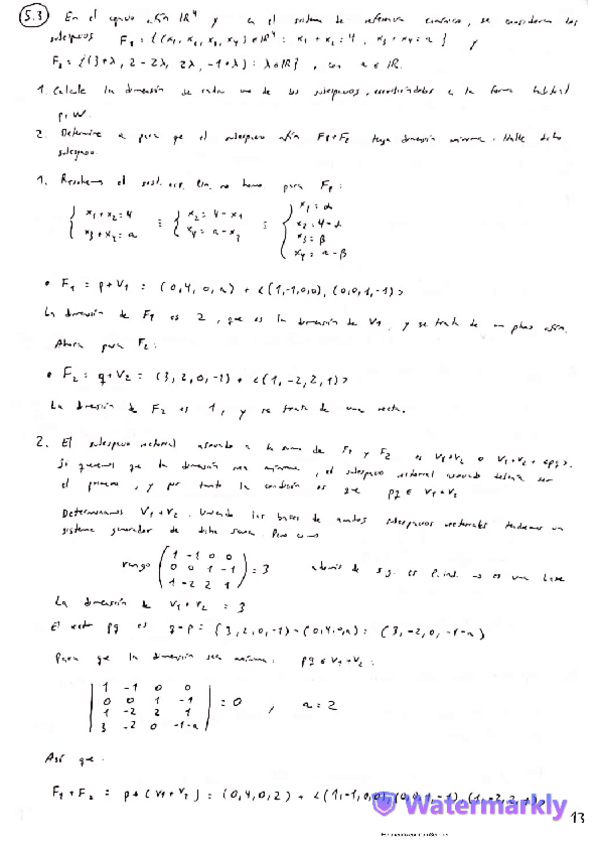 5.3 En el espacio afín IR⁴ y en el sistema de referencia canónico, se consideran los
subespacios F₁ = {(x₁, x₂, x₃, x₄) ∈ IR⁴ : x₁ + x₂ = 4, x₃ + x₄ = a} y
F₂ = {(3+λ, 2-2λ, 2λ, -1+λ) : λ ∈ IR}, con a ∈ IR.
1. Calcule la dimensión de cada uno de los subespacios, escribiéndolos a la forma habitual
p+W.
2. Determine a para que el subespacio afín F₁+F₂ tenga dimensión mínima. Halle dicho
subespacio.
1. Resolvemos el sist. ecs. lin. no homo para F₁:
{ x₁+x₂=4 x₃+x₄=a : { x₂=4-x₁ x₄=a-x₃ : { x₁=α x₂=4-α x₃=β x₄=a-β
• F₁ = p+V₁ = (0,4,0,a) + <(1,-1,0,0), (0,0,1,-1)>
La dimensión de F₁ es 2, que es la dimensión de V₁, y se trata de un plano afín.
Ahora para F₂:
• F₂ = q+V₂ = (3,2,0,-1) + <(1,-2,2,1)>
La dimensión de F₂ es 1, y se trata de una recta.
2. El subespacio vectorial asociado a la suma de F₁ y F₂ es V₁+V₂ o V₁+V₂+<pq>.
Si queremos que la dimensión sea mínima, el subespacio vectorial asociado debería ser
el primero, y por tanto la condición es que pq ∈ V₁+V₂
Determinamos V₁+V₂. Uniendo las bases de ambos subespacios vectoriales tendremos un
sistema generador de dicha suma. Pero como
rango ( 1 -1 0 0
0 0 1 -1
1 -2 2 1 ) = 3 además de s.g. es l.ind. → es una base
La dimensión de V₁+V₂ = 3
El vector pq es q-p = (3,2,0,-1) - (0,4,0,a) = (3,-2,0,-1-a)
Para que la dimensión sea mínima: pq ∈ V₁+V₂:
| 1 -1 0 0 |
| 0 0 1 -1 |
| 1 -2 2 1 |
| 3 -2 0 -1-a | = 0, a = 2
Así que
F₁+F₂ = p+(V₁+V₂) = (0,4,0,2) + <(1,-1,0,0), (0,0,1,-1), (1,-2,2,1)>
Watermarkly
13